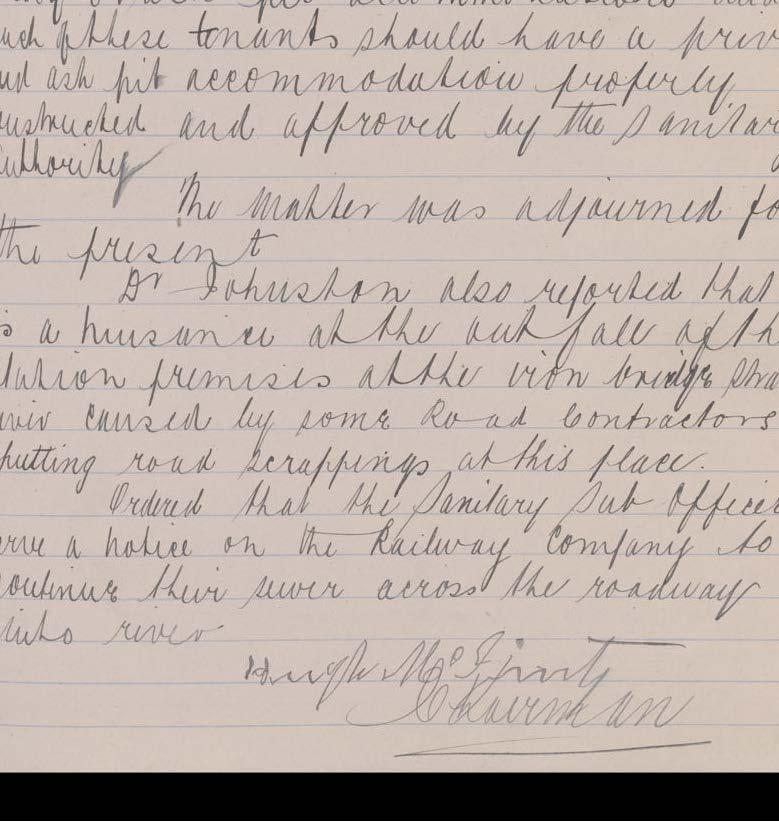 uch of these tenants should have a priv
nd ash pit accommodation properly
onstructed and approved by the Sanitar
uthority
The matter was adjourned fo
the present
Dr Johnston also reported that
is a nuisance at the outfall of th
tation premises at the iron bridge Stra
caused by some Road Contractors
putting road scrappings at this place.
Ordered that the Sanitary Sub Officer
erve a notice on the Railway Company to
continue their sewer across the roadway
into river
Hugh
Chairman